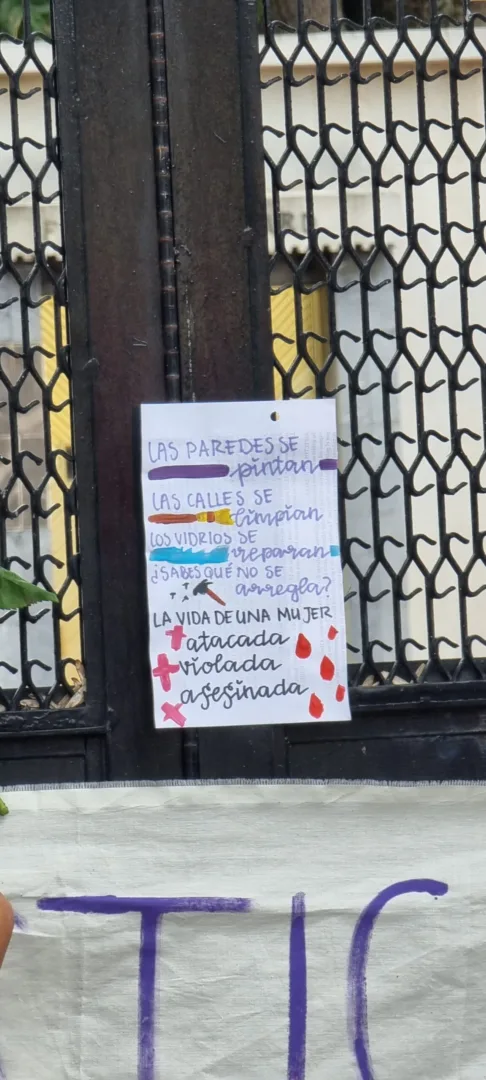 LAS PAREDES SE
pintan
LAS CALLES SE
limpian
LOS VIDRIOS SE
reparan
¿SABES QUÉ NO SE
arregla?
LA VIDA DE UNA MUJER
atacada
violada
asesinada
TIC